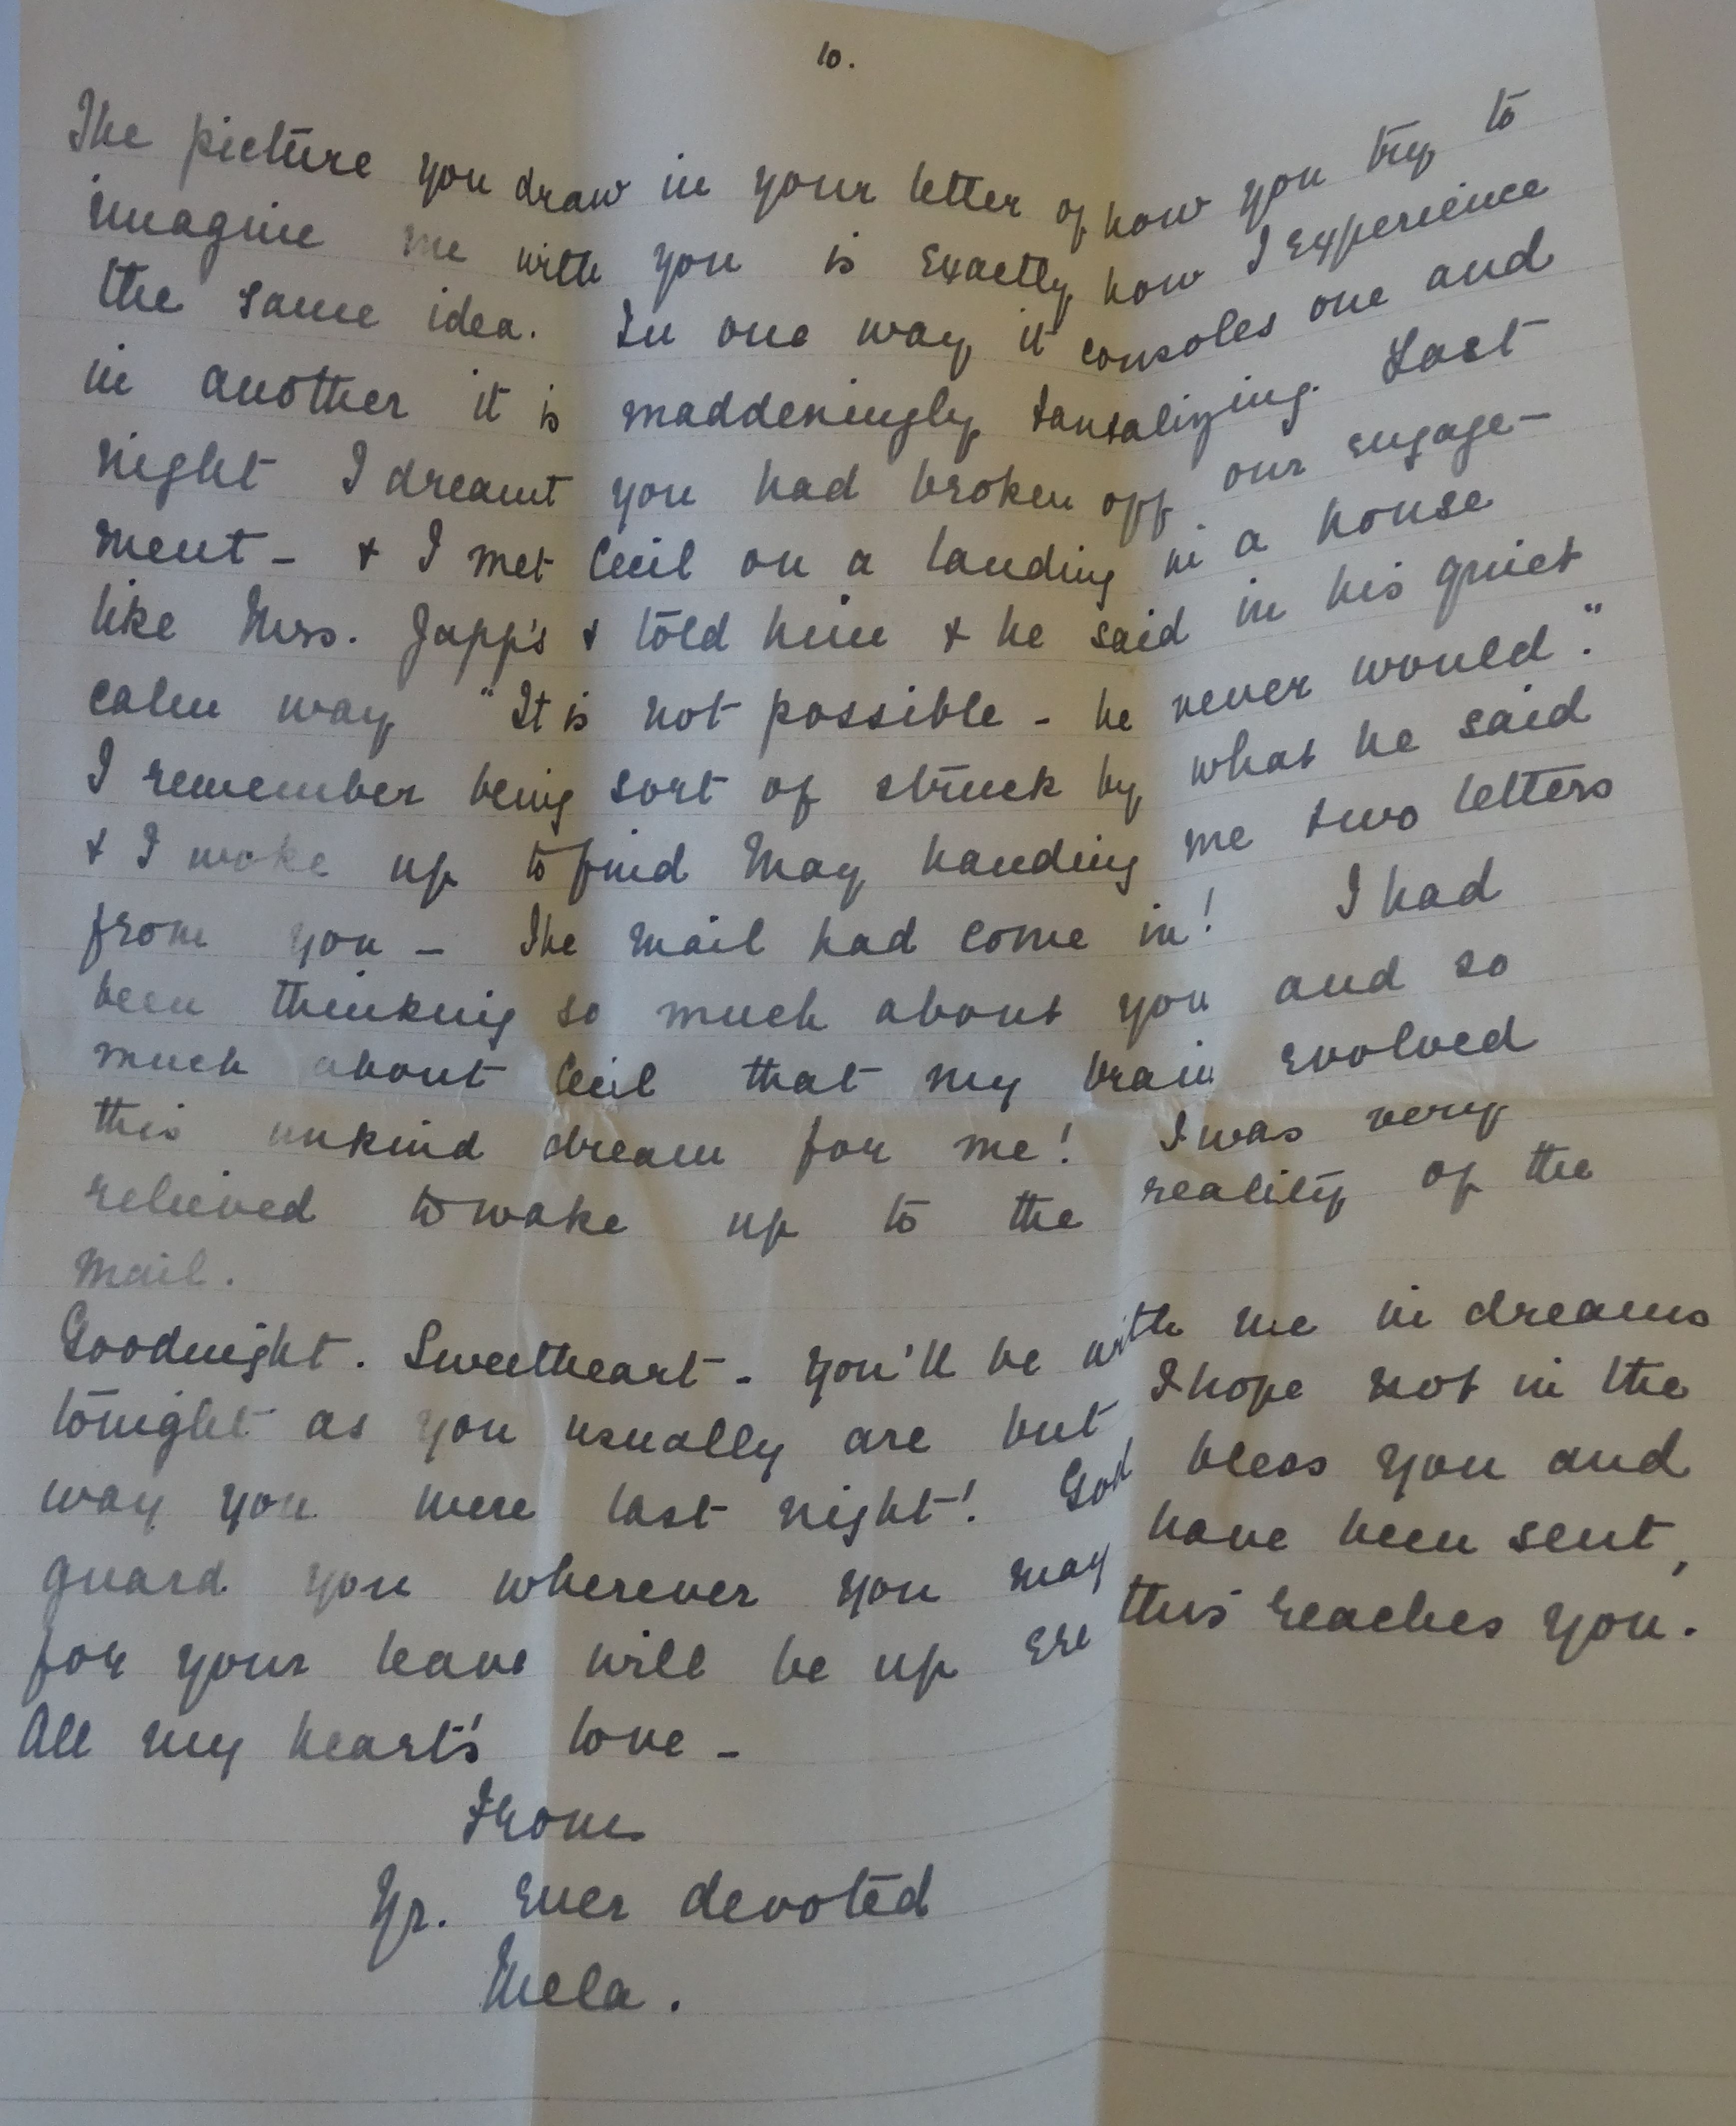 10.
The picture you draw in your letter of how you try to
imagine me with you is exactly how I experience
the same idea. In one way it consoles one and
in another it is maddeningly tantalizing. Last
night I dreamt you had broken off our engage-
ment - & I met Cecil on a landing in a house
like Mrs. Japp's & told him & he said in his quiet
calm way "It is not possible - he never would."
I remember being sort of struck by what he said
& I woke up to find May handing me two letters
from you - The mail had come in! I had
been thinking so much about you and so
much about Cecil that my brain evolved
this unkind dream for me! I was very
relieved to wake up to the reality of the
mail.
Goodnight. Sweetheart - you'll be with me in dreams
tonight as you usually are but I hope not in the
way you were last night! God bless you and
guard you wherever you may have been sent,
for your leave will be up ere this reaches you.
All my heart's love -
From
Yr. ever devoted
Mela.